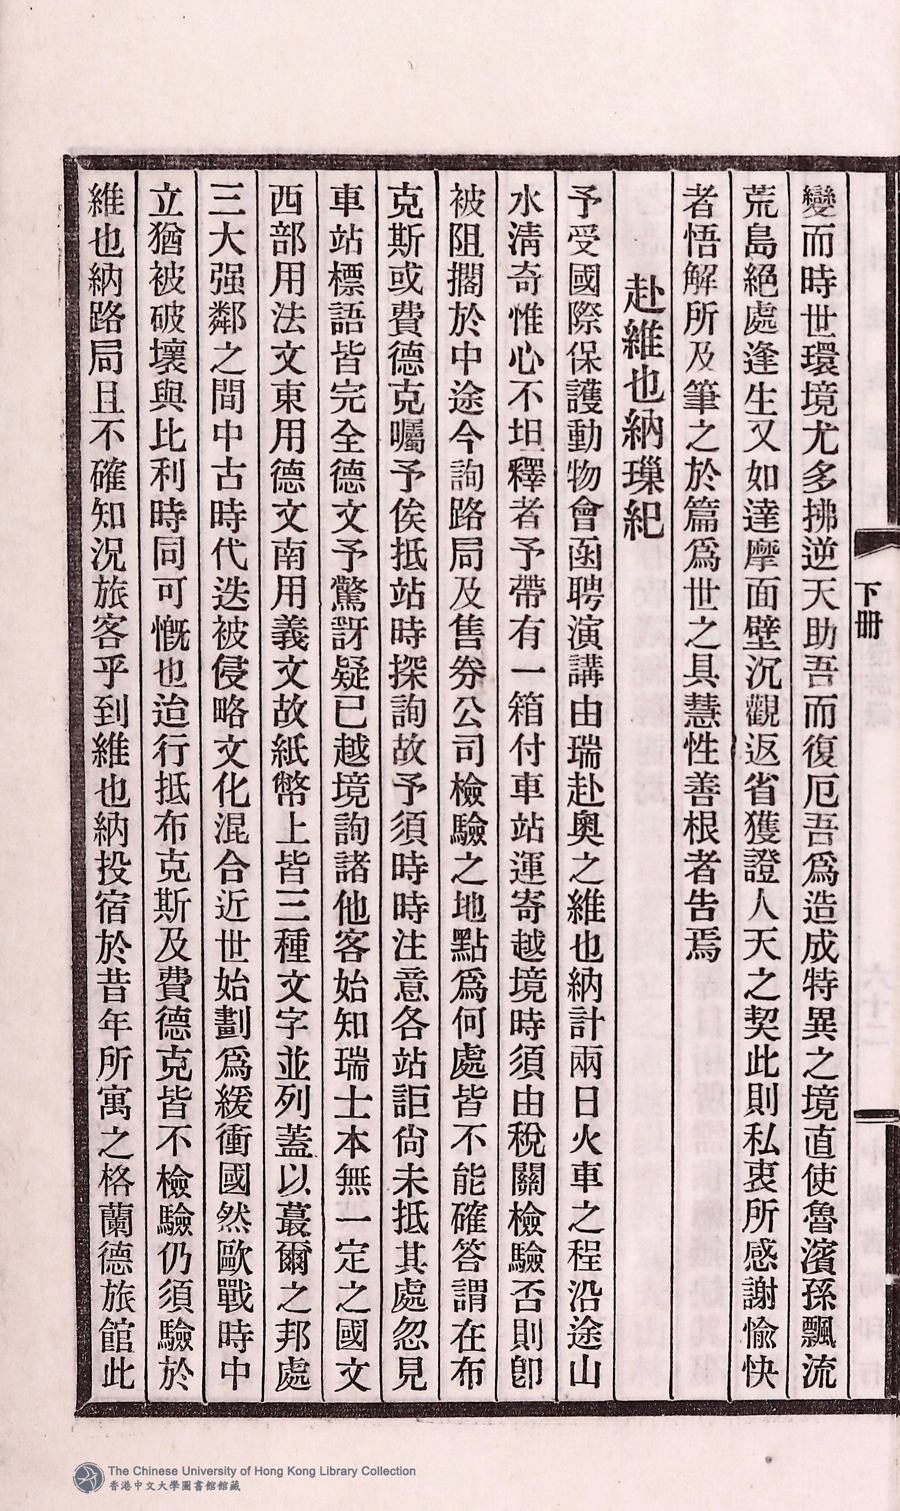 變而時世環境尤多拂逆天助吾而復厄吾爲造成特異之境直使魯濱孫飄流
荒島絕處逢生又如達摩面壁沉觀返省獲證人天之契此則私衷所感謝愉快
者悟解所及筆之於篇爲世之具慧性善根者告焉
赴維也納璅紀
予受國際保護動物會函聘演講由瑞赴奧之維也納計兩日火車之程沿途山
水淸奇惟心不坦釋者予帶有一箱付車站運寄越境時須由稅關檢驗否則卽
被阻擱於中途今詢路局及售券公司檢驗之地點爲何處皆不能確答謂在布
克斯或費德克囑予俟抵站時探詢故予須時時注意各站詎尙未抵其處忽見
車站標語皆完全德文予驚訝疑已越境詢諸他客始知瑞士本無一定之國文
西部用法文東用德文南用義文故紙幣上皆三種文字並列蓋以蕞爾之邦處
三大强鄰之間中古時代迭被侵略文化混合近世始劃爲緩衝國然歐戰時中
立猶被破壞與比利時同可慨也迨行抵布克斯及費德克皆不檢驗仍須驗於
維也納路局且不確知況旅客乎到維也納投宿於昔年所寓之格蘭德旅館此
下冊
The Chinese University of Hong Kong Library Collection
香港中文大學圖書館館藏